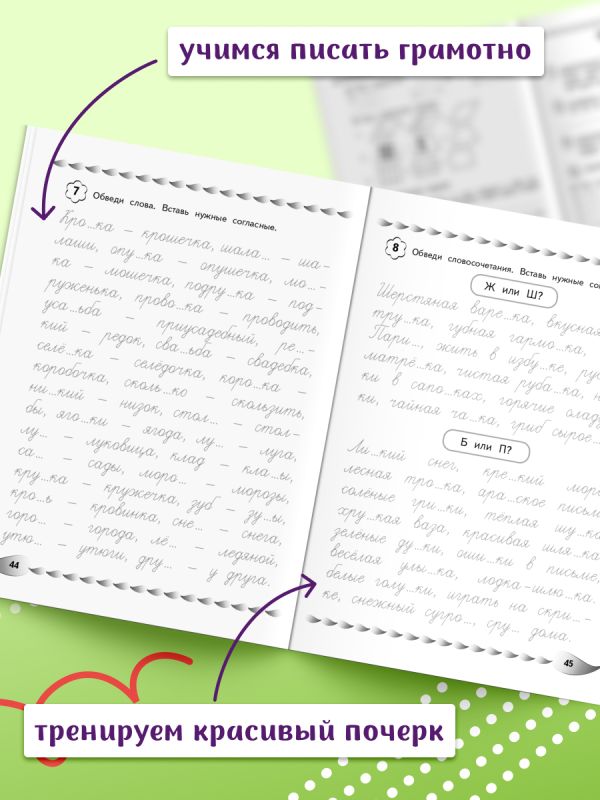 учимся писать грамотно
7 Обведи слова. Вставь нужные согласные.
Кро...ка – крошечка, шала... – ша-
лаши, опу...ка – опушечка, мо...-
ка – мошечка, подру...ка – под-
руженька, прово...ка – проводить,
уса...ьба – приусадебный, ре... –
кий – редок, сва...ьба – свадебка,
селё...ка – селёдочка, коро...ка –
коробочка, сколь...ко – скользить,
ни...кий – низок, стол... – стол-
бы, яго...ки – ягода, лу... – луга,
лу... – луковица, клад – кла...ы,
са... – сады, моро... – морозы,
кру...ка – кружечка, зуб – зу...ы,
кро...ь – кровинка, сне... – снега,
горо... – города, лё... – ледяной,
утю... – утюги, дру... – у друга.
44
8 Обведи словосочетания. Вставь нужные
Ж или Ш?
Шерстяная варе...ка, вкусная
тру...ка, губная гармо...ка,
Пари..., жить в избу...ке,
матрё...ка, чистая руба...ка,
ки в сапо...ках, горячие
ки, чайная ча...ка, гриб сырое...
Б или П?
Ли...кий снег, кре...кий
лесная тро...ка, ара...ское
солёные гри...ки, тёплая шу...ка,
хру...кая ваза, красивая шля...ка,
зелёные ду...ки, оши...ки в письме,
весёлая улы...ка, лодка-шлю...ка,
белые голу...ки, играть на скри...-
ке, снежный сугро..., сру... дома.
45
тренируем красивый почерк